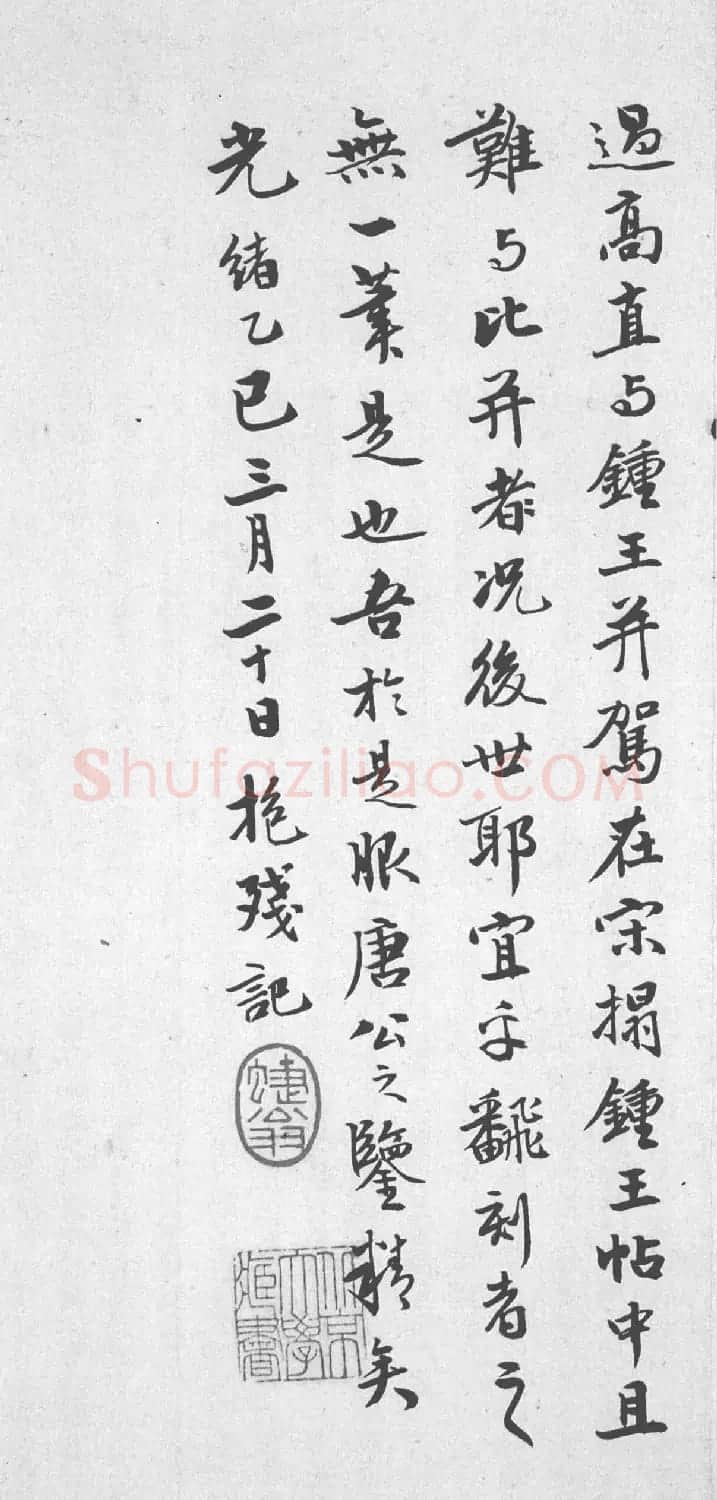 過高直与鍾王并駕在宋搨鍾王帖中且
難与比并者况後世耶宜乎飜刻者之
無一葉是也吾於是服唐公之鑒精矣
光緒乙巳三月二十日抱殘記
蜨翁
北京大學藏書
Shufaziliao.COM